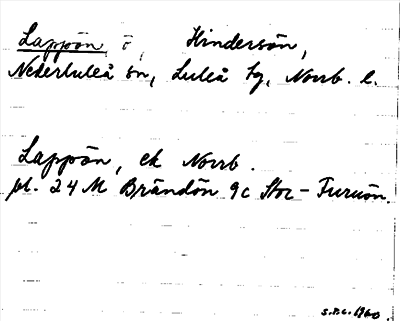 Lappön, ö, Hindersön,
Nederluleå sn, Luleå tg, Norrb. l.
Lappön, ek Norrb.
pl. 24 M Brändön 9c Stor-Furuön.
S.P.G. 1960.